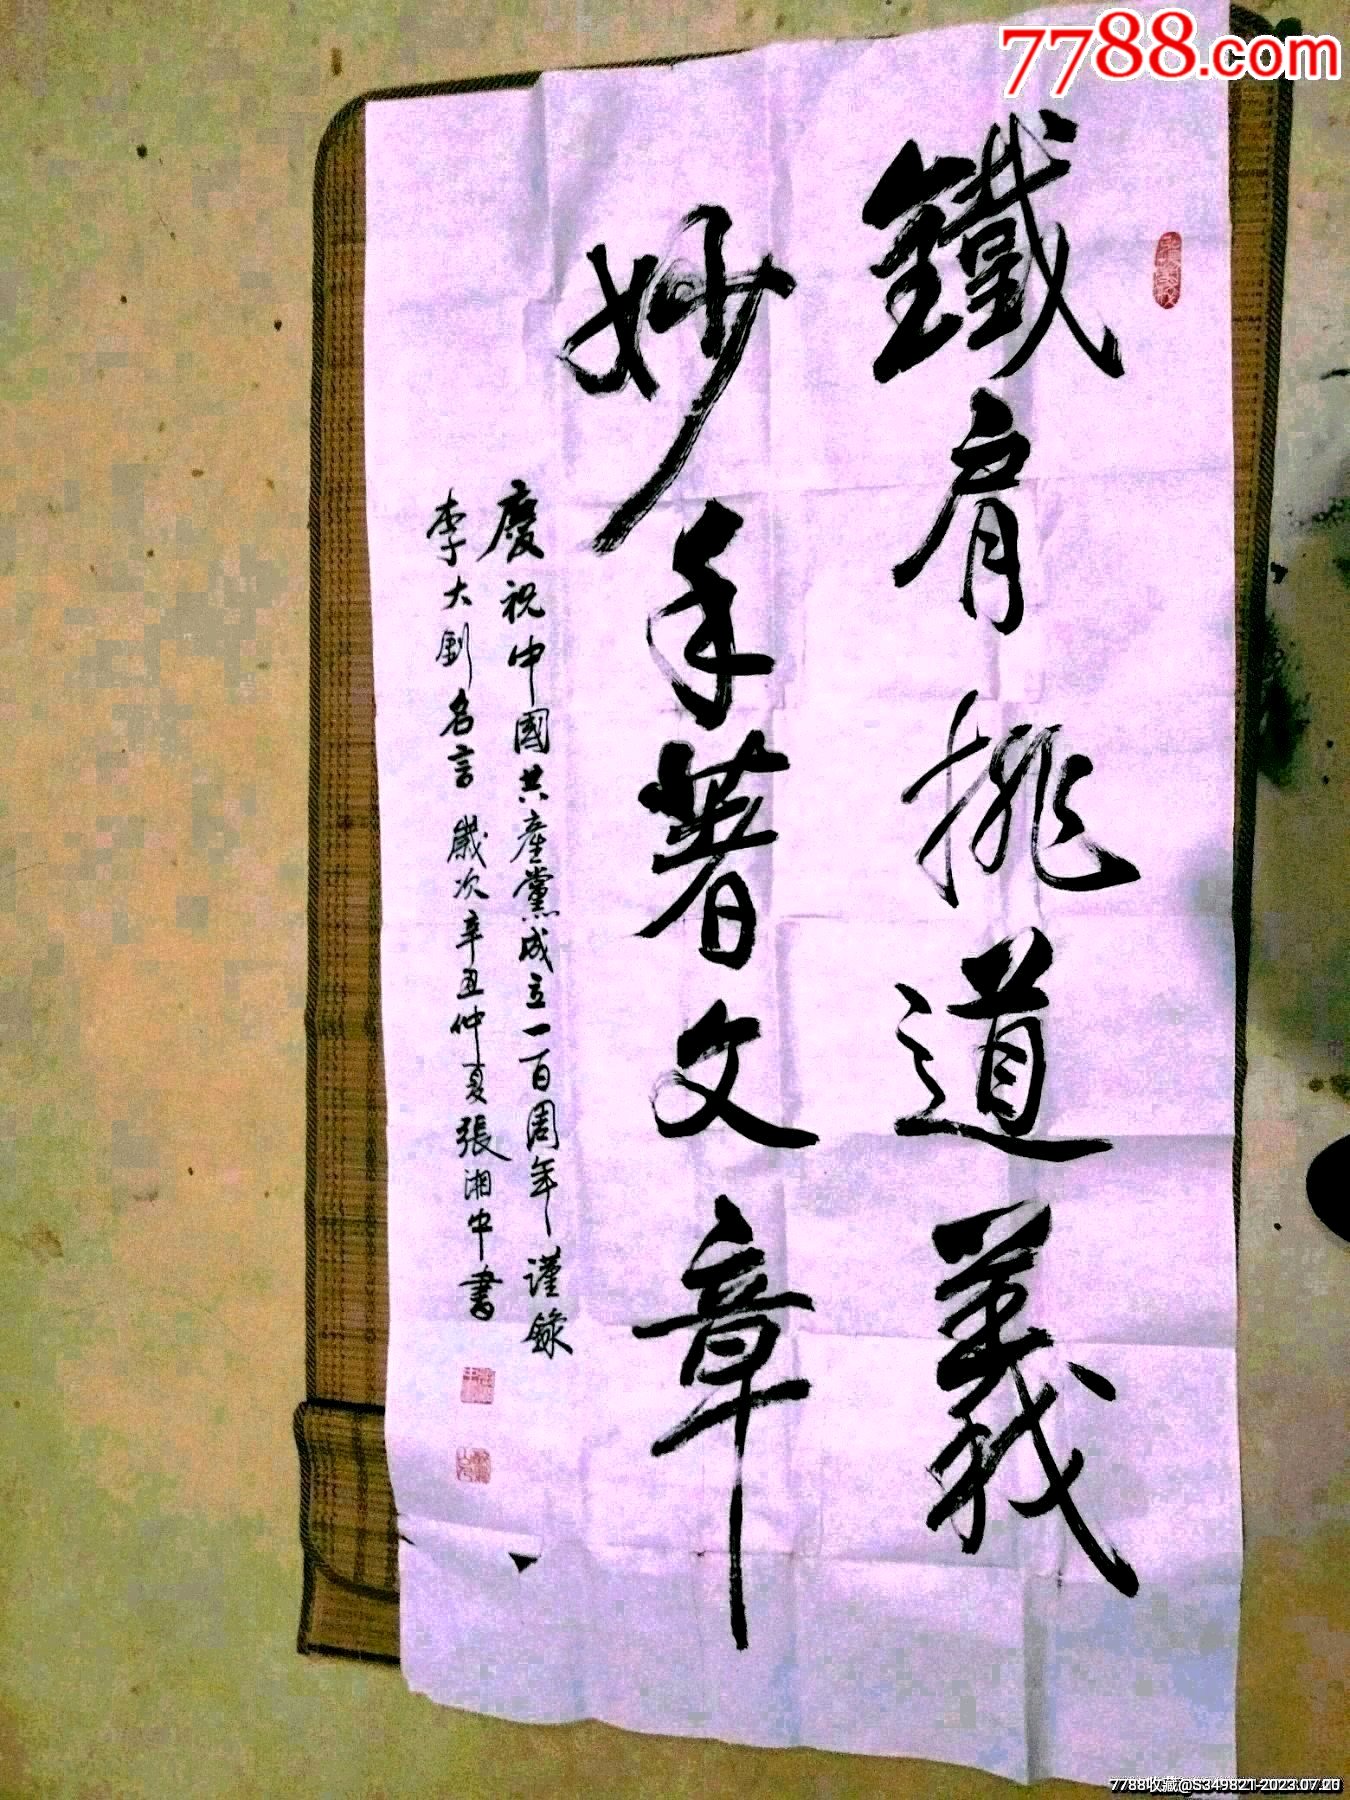 7788.com
鐵肩挑道義
妙手著文章
慶祝中國共產黨成立一百周年謹錄
李大釗名言歲次辛丑仲夏張湘中書
7788收藏@S349821-2023.07.20